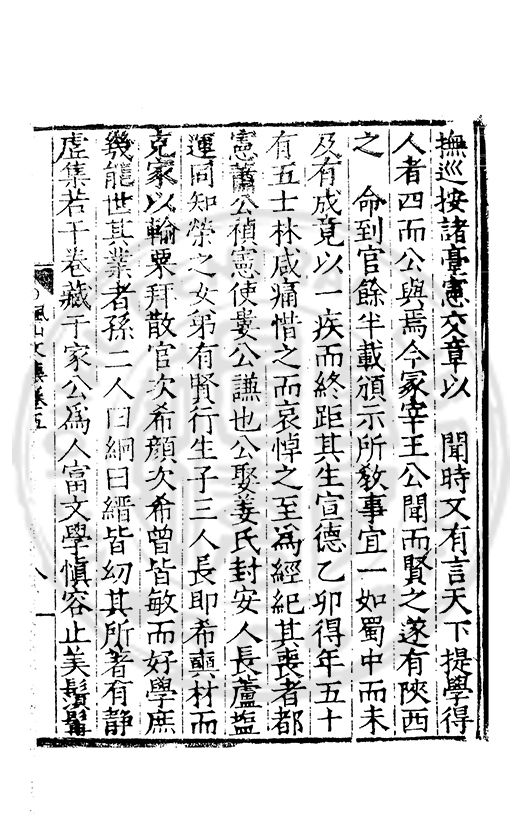 撫巡按諸臺憲交章以　聞時又有言天下提學得
人者四而公與焉今冢宰王公聞而賢之遂有陝西
之　命到官餘半載頒示所教事宜一如蜀中而未
及有成竟以一疾而終距其生宣德乙卯得年五十
有五士林咸痛惜之而哀悼之至為經紀其喪者都
憲蕭公禎憲使婁公謙也公娶姜氏封安人長蘆塩
運同知榮之女弟有賢行生子三人長即希奭材而
克家以輸粟拜散官次希顔次希曾皆敏而好學庶
幾能世其業者孫二人曰綱曰縉皆幼其所著有静
虚集若干卷藏于家公為人富文學愼容止美鬚髯
楓山文集卷五
八